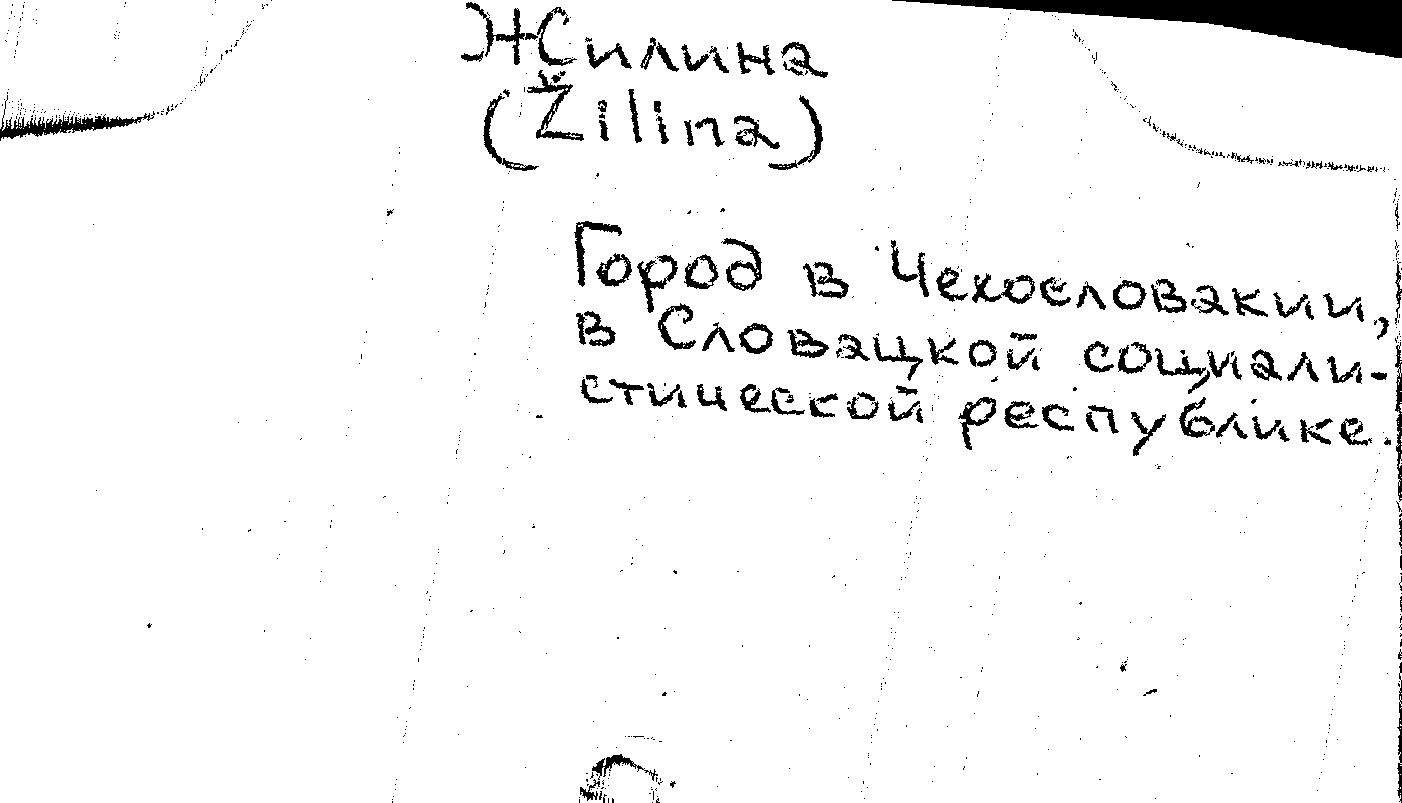 Жилина
(Žilina)
Город в Чехословакии,
в Словацкой социали-
стической республике.